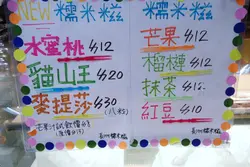 NEW 糯米糍
水蜜桃 $12
貓山王 $20
麥提莎 $30
糯米糍
芒果 $12
榴槤 $12
抹茶
紅豆 $10